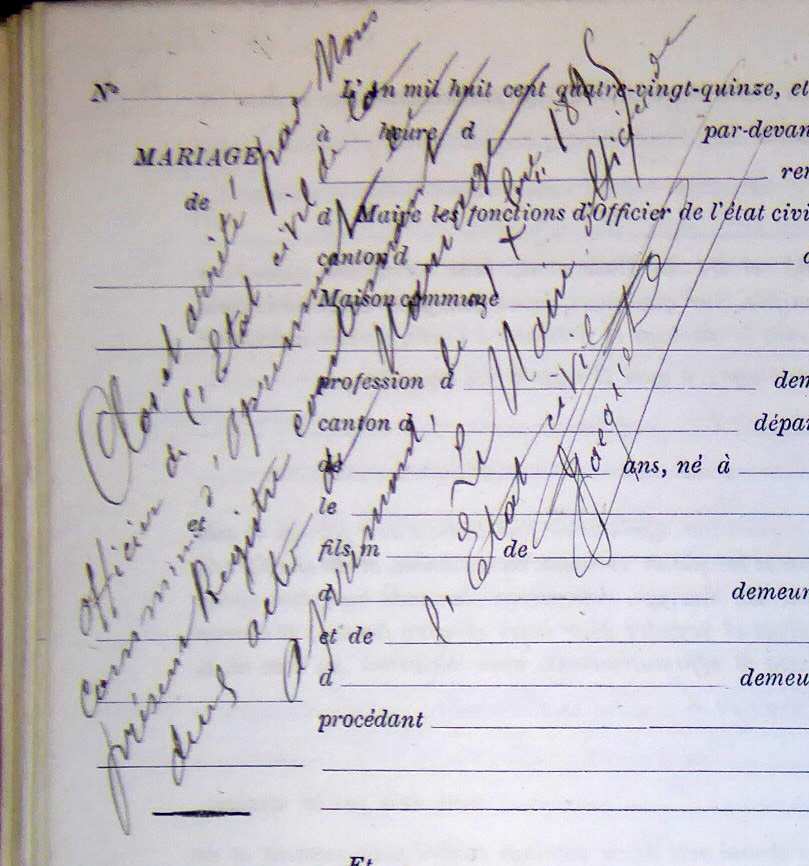 N°
MARIAGE
de
et
L'An mil huit cent quatre-vingt-quinze, et
à heure d par-devan
ren
d Maire les fonctions d'Officier de l'état civi
canton d
Maison commune
profession d dem
canton d dépar
de ans, né à
le
fils m de
d demeur
et de
d demeu
procédant
Et
Clos et arrêté par Nous
officier de l'Etat civil de la
commune d'
présent Registre contenant
deux actes de Mariage
Le Maire, officier de
l'Etat civil
Jacquet